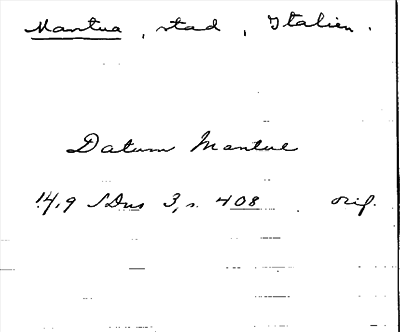 Mantua, stad, Italien.
Datum Mantue
14/9 SDns 3, s. 408 . orig.